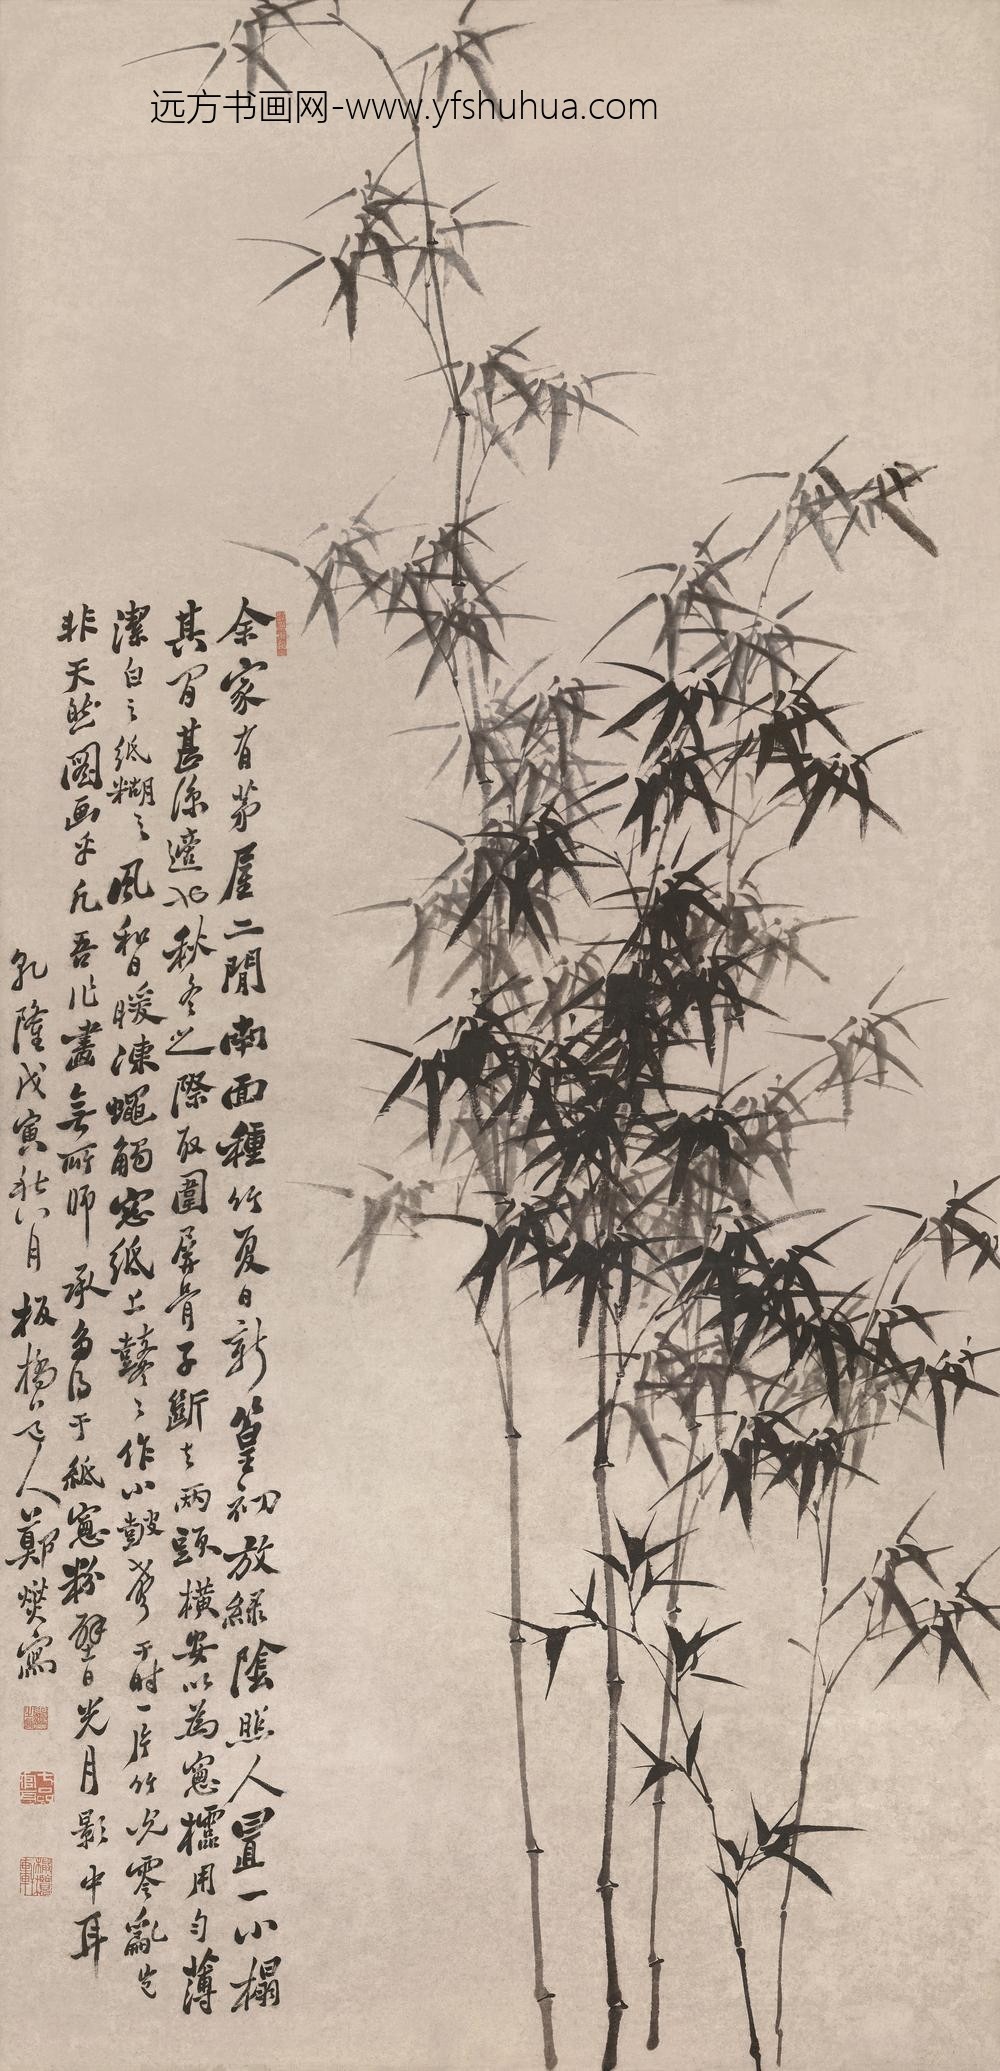 远方书画网-www.yfshuhua.com
余家有茅屋二間南面種竹夏日新篁初放綠陰照人置一小榻
其間甚涼適也秋冬之際取圍屏骨子斷去兩頭橫安以為窻櫺用勻薄
潔白之紙糊之風和日暖凍蠅觸窻紙上鼕鼕作小鼓聲于時一片竹影零亂豈
非天然圖画乎凡吾作畫無所師承多得于紙窻粉壁日光月影中耳
乾隆戊寅秋八月板橋道人鄭燮寫